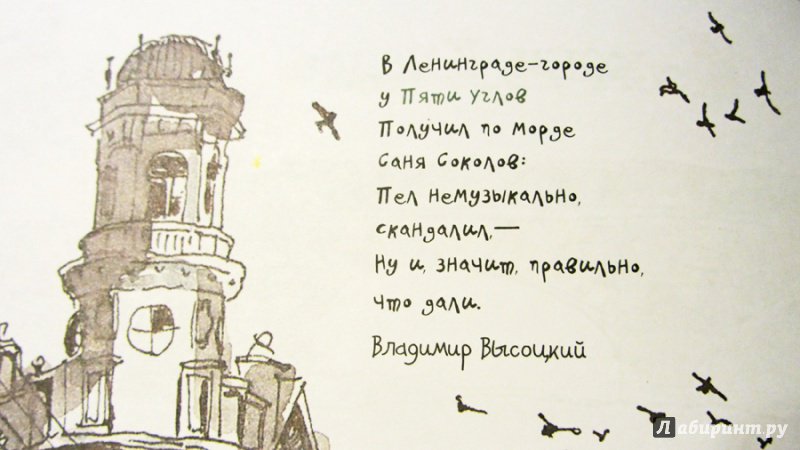 В Ленинграде-городе
у Пяти Углов
Получил по морде
Саня Соколов:
Пел немузыкально,
скандалил,—
Ну и, значит, правильно,
что дали.
Владимир Высоцкий
Лабиринт.ру